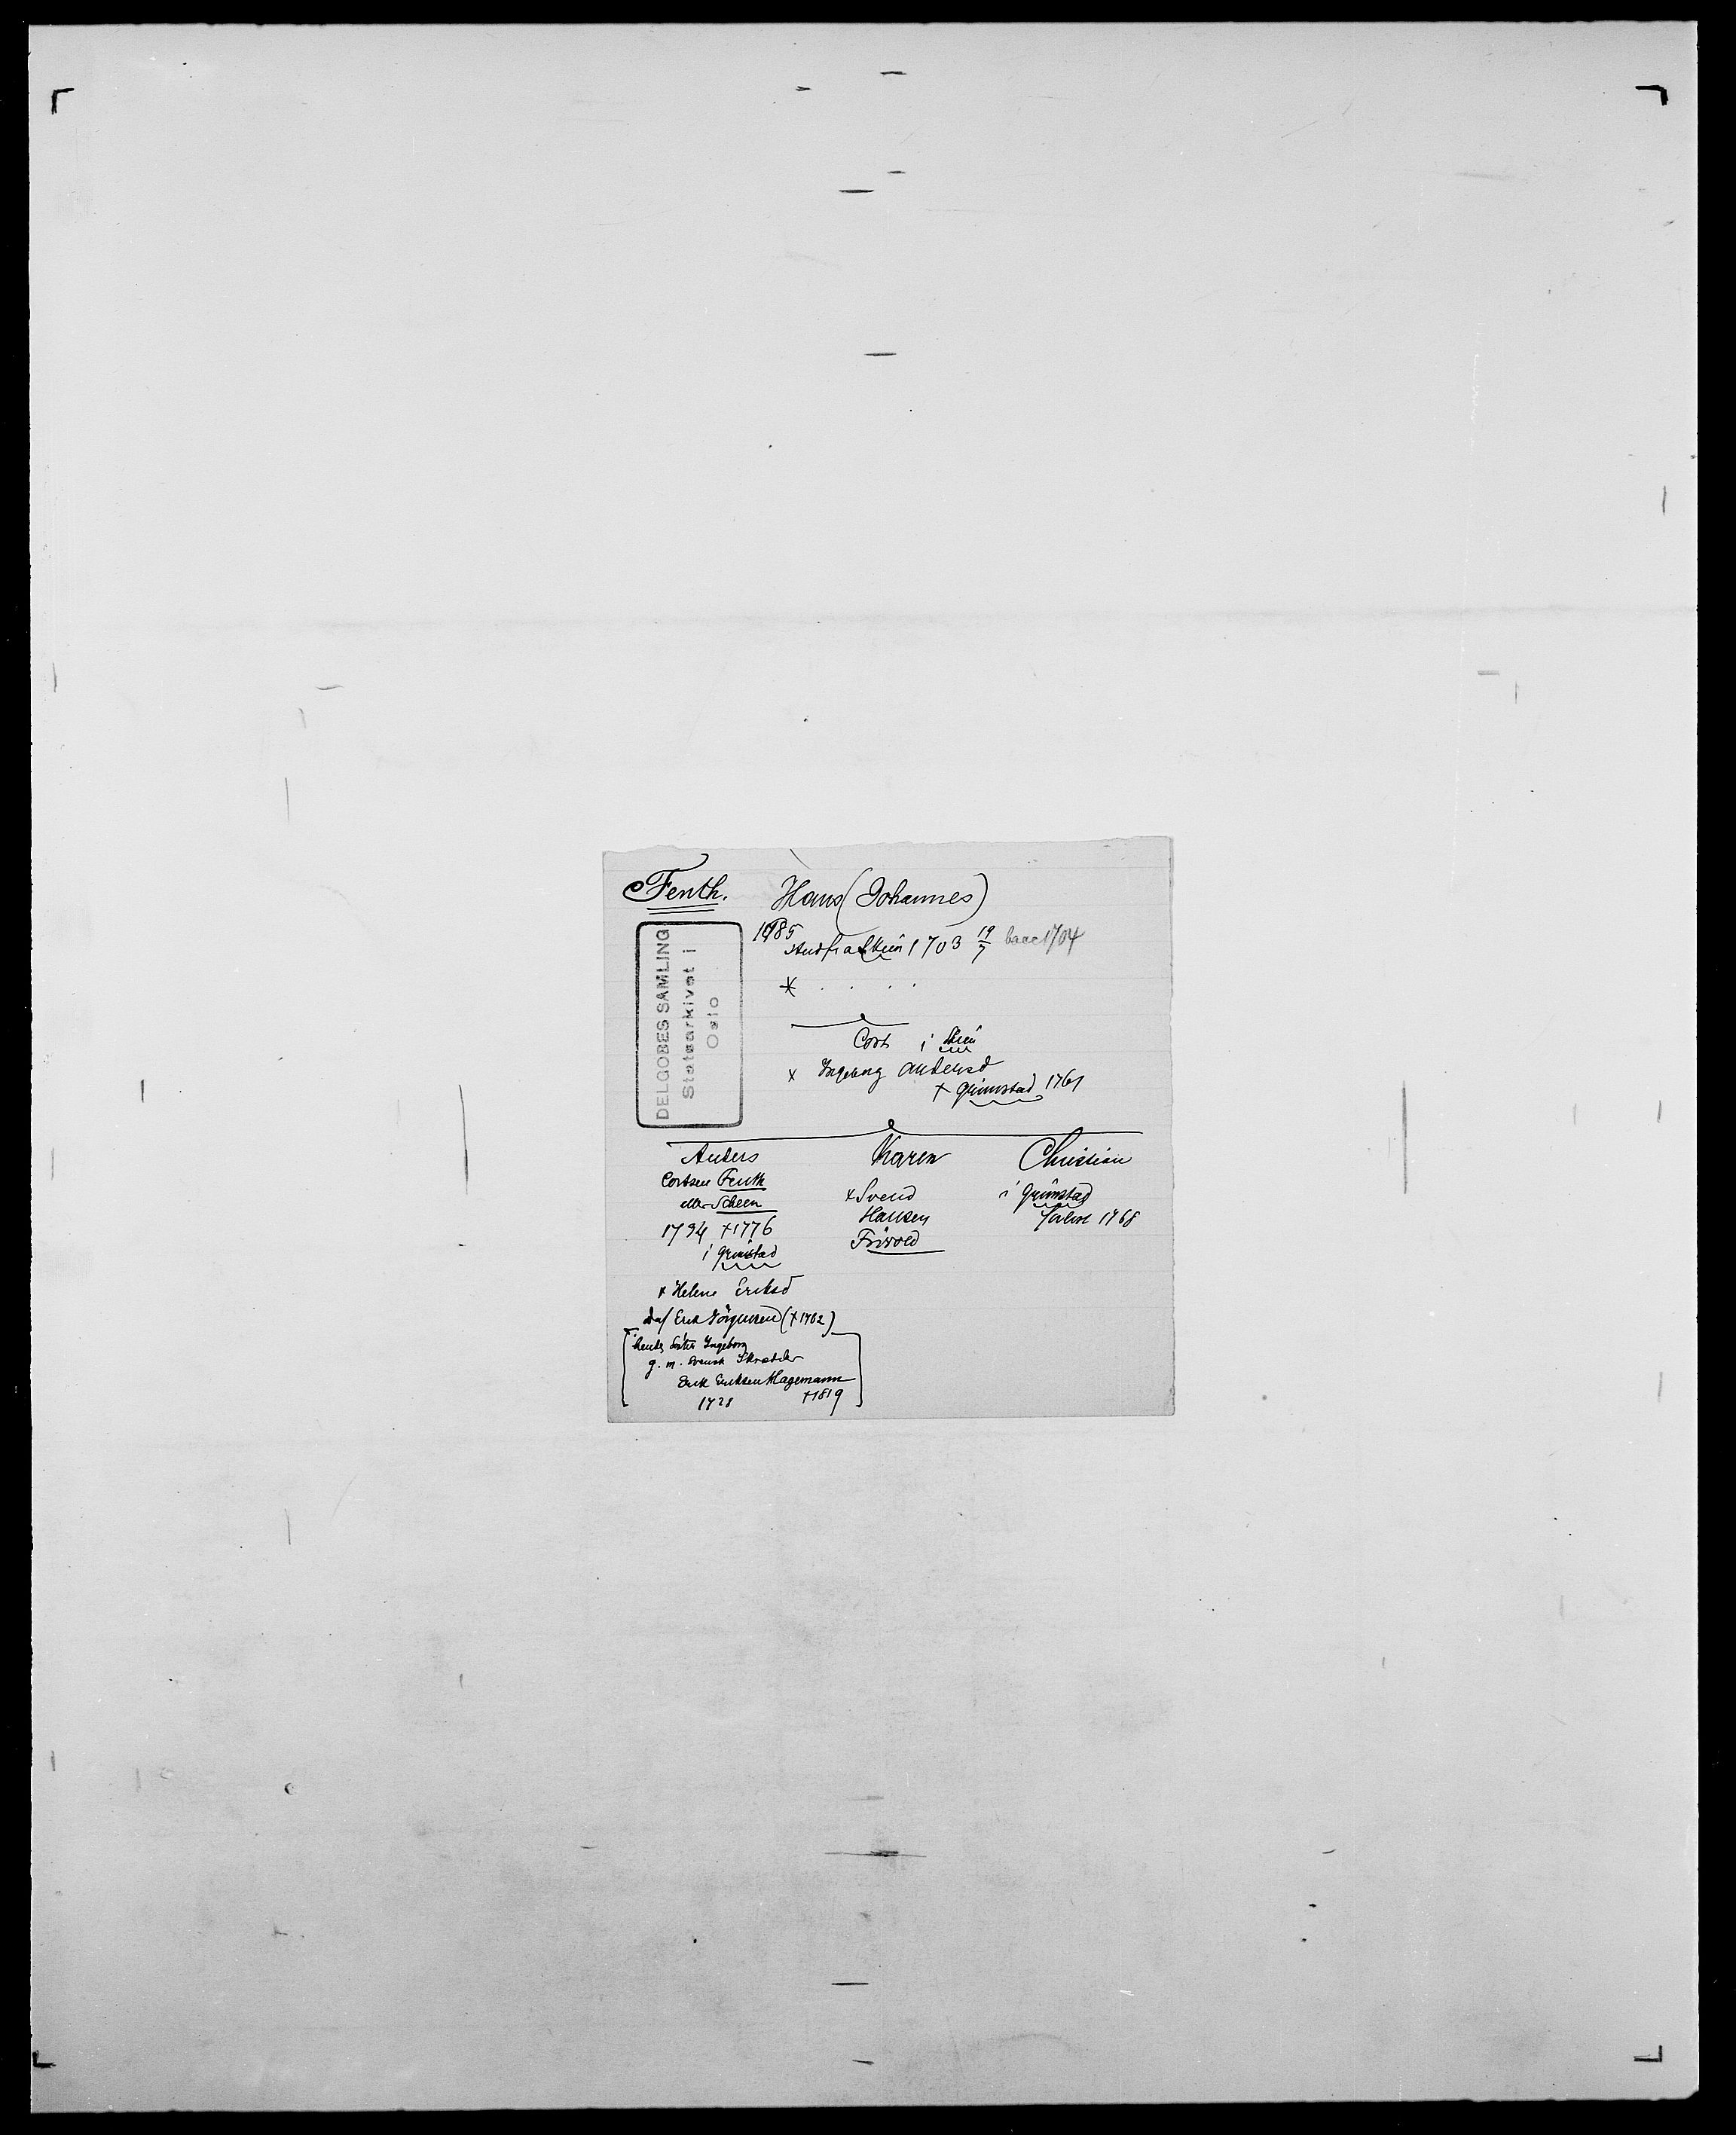 Fenth. Hans (Johannes)
1685
Stud fra Skien 1703 19/7 bacc 1704
DELGOBES SAMLING
Statsarkivet i
Oslo
* . . . .
Cort i Skien
x Ingeborg Andersd
† Grimstad 1761
Anders Karen Christian
Cortsen Fenth x Svend i Grimstad
eller Scheen Hansen 1768
1734 †1776 Frivold
i Grimstad
x Helene Eriksd
d af Erik Jörgensen (†1702)
hendes Søster Ingeborg
g. m. Svensk Skrædder
Erik Eriksen Hagemann
1728 †1819